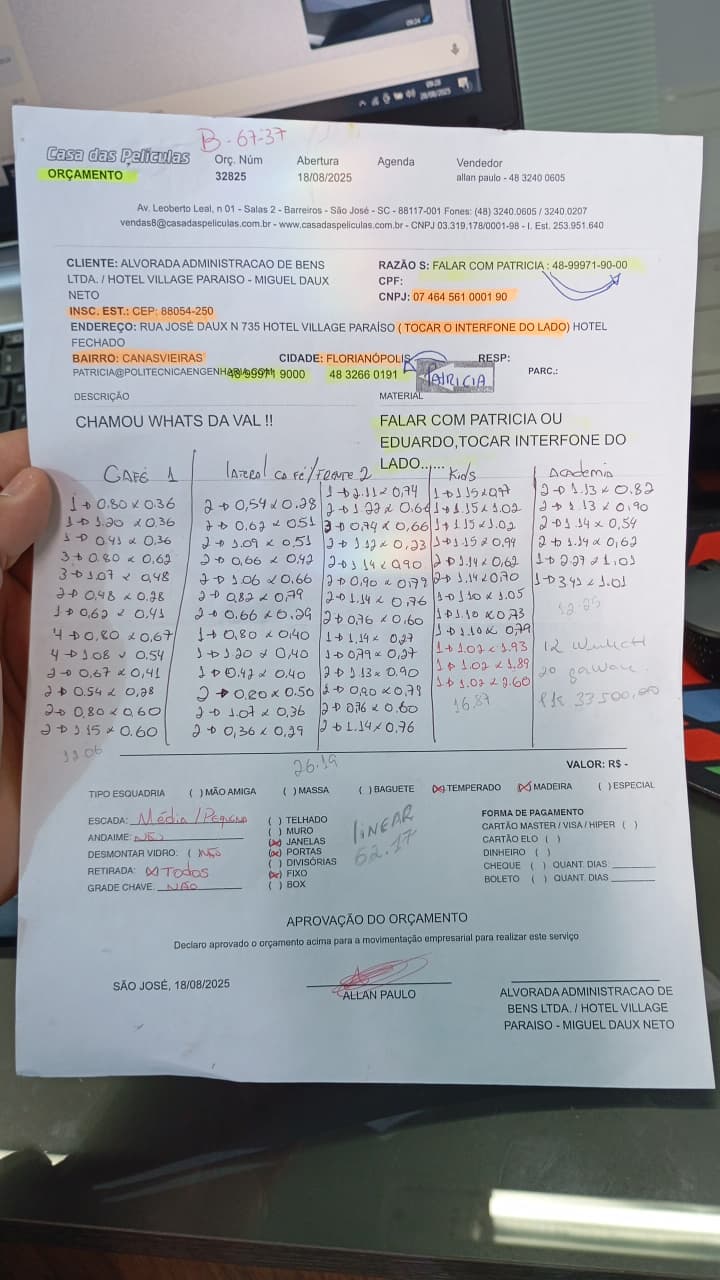 09:24
09:28
28/08/2025
B-67-37
Casa das Películas
ORÇAMENTO
Orç. Núm
32825
Abertura
18/08/2025
Agenda
Vendedor
allan paulo - 48 3240 0605
Av. Leoberto Leal, n 01 - Salas 2 - Barreiros - São José - SC - 88117-001 Fones: (48) 3240.0605 / 3240.0207
vendas8@casadaspeliculas.com.br - www.casadaspeliculas.com.br - CNPJ 03.319.178/0001-98 - I. Est. 253.951.640
CLIENTE: ALVORADA ADMINISTRACAO DE BENS
LTDA. / HOTEL VILLAGE PARAISO - MIGUEL DAUX
NETO
RAZÃO S: FALAR COM PATRICIA : 48-99971-90-00
CPF:
CNPJ: 07 464 561 0001 90
INSC. EST.: CEP: 88054-250
ENDEREÇO: RUA JOSÉ DAUX N 735 HOTEL VILLAGE PARAÍSO ( TOCAR O INTERFONE DO LADO) HOTEL
FECHADO
BAIRRO: CANASVIEIRAS
CIDADE: FLORIANÓPOLIS
RESP:
PATRICIA@POLITECNICAENGENHARIA.COM
48 99971 9000
48 3266 0191
PATRICIA
PARC.:
DESCRIÇÃO
MATERIAL
CHAMOU WHATS DA VAL !!
FALAR COM PATRICIA OU
EDUARDO,TOCAR INTERFONE DO
LADO......
CAFÉ 1
1→0.80 x 0.36
1→1.20 x 0.36
1→0.41 x 0.36
3→0.80 x 0.62
3→1.07 x 0.48
2→0.48 x 0.28
1→0,62 x 0.41
4→0,80 x 0.67
4→1.08 x 0.54
2→0.67 x 0,41
2→0.54 x 0,28
2→0,80 x 0.60
2→1.15 x 0.60
12.06
lateral café/FRENTE 2
2→0,54 x 0.28
2→0.62 x 0.51
2→1.09 x 0.51
2→0.66 x 0.42
2→1.06 x 0.66
2→0.82 x 0.79
2→0.66 x 0.29
1→0,80 x 0.40
1→1.20 x 0,40
1→0.42 x 0.40
2→0.80 x 0.50
2→1.07 x 0,36
2→0,36 x 0,29
1→2.11 x 0,74
2→1.22 x 0.66
3→0.74 x 0.66
2→1.12 x 0,23
2→1.14 x 0,90
2→0,90 x 0,79
2→1.14 x 0,76
2→0,76 x 0,60
1→1.14 x 0,27
1→0,79 x 0,27
2→1.13 x 0.90
2→0,90 x 0,79
2→0,76 x 0.60
2→1.14 x 0,76
26.19
Kids
1→1.15 x 0,97
1→1.15 x 1.02
1→1.15 x 1.02
1→1.15 x 0,94
2→1.14 x 0,62
2→1.14 x 0,70
1→1.10 x 1.05
1→1.10 x 0,73
1→1.10 x 0,79
1→1.02 x 1.93
1→1.02 x 1,89
1→1.02 x 2.60
16.87
Academia
2→1.13 x 0.82
2→1.13 x 0,90
2→1.14 x 0,54
2→1.14 x 0,62
1→2.27 x 1,01
1→3.41 x 1.01
12.25
R$ 33.500,00
VALOR: R$ -
TIPO ESQUADRIA ( ) MÃO AMIGA ( ) MASSA ( ) BAGUETE (x) TEMPERADO (x) MADEIRA ( ) ESPECIAL
ESCADA: Média/Pequena
ANDAIME: NÃO
DESMONTAR VIDRO: ( ) NÃO
RETIRADA: (x) Todos
GRADE CHAVE: NÃO
( ) TELHADO
( ) MURO
(x) JANELAS
(x) PORTAS
( ) DIVISÓRIAS
(x) FIXO
( ) BOX
LINEAR
62.17
FORMA DE PAGAMENTO
CARTÃO MASTER / VISA / HIPER ( )
CARTÃO ELO ( )
DINHEIRO ( )
CHEQUE ( ) QUANT. DIAS:
BOLETO ( ) QUANT. DIAS
APROVAÇÃO DO ORÇAMENTO
Declaro aprovado o orçamento acima para a movimentação empresarial para realizar este serviço
SÃO JOSÉ, 18/08/2025
ALLAN PAULO
ALVORADA ADMINISTRACAO DE
BENS LTDA. / HOTEL VILLAGE
PARAISO - MIGUEL DAUX NETO